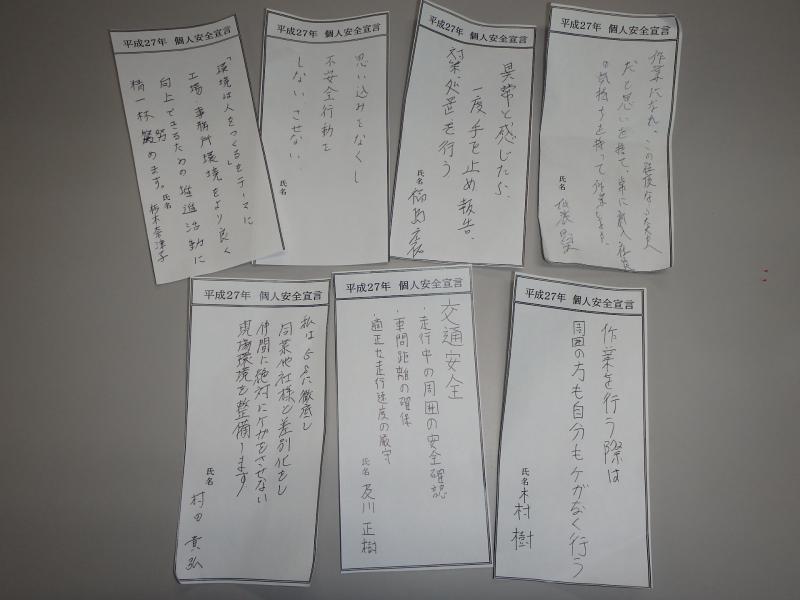 平成27年 個人安全宣言
「環境は人をつくる」をテーマに
工場、事務所環境をより良く
向上できるための推進活動に
精一杯努めます。
氏名
栃木奈津子
平成27年 個人安全宣言
思い込みをなくし
不安全行動を
しない させない
氏名
平成27年 個人安全宣言
異常と感じたら、
一度手を止め 報告、
対策、処置を行う
氏名
平成27年 個人安全宣言
作業になれ、この程度なら大丈夫
だと思いを捨て、常に新入社員
の気持ちを持って作業
氏名
平成27年 個人安全宣言
私は5Sに徹底し
同業他社様と差別化をし
仲間に絶対にケガをさせない
現場環境を整備します
氏名
村田 貴弘
平成27年 個人安全宣言
交通安全
・走行中の周囲の安全確認
・車間距離の確保
・適正な走行速度の厳守
氏名 及川 正樹
平成27年 個人安全宣言
作業を行う際は
周囲の方も自分もケガなく行う
氏名 木村 樹